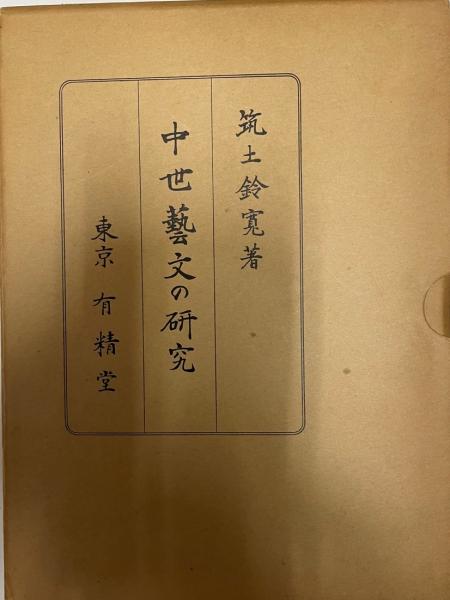 筑土鈴寛著
中世藝文の研究
東京 有精堂